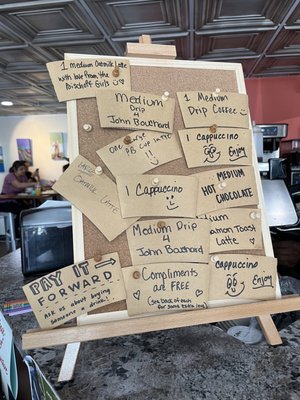 1 Medium Oatmilk Latte
with love from the
Bischoff Girls
Medium
Drip
4
John Bouchard
1 Medium
Drip Coffee
One large
PB cup
Cappuccino
Enjoy
Large
Oatmilk
Latte
1 Cappuccino
Medium
Hot
Chocolate
Medium Drip
4
John Bouchard
Medium
Almond
Toast
Latte
Pay it
Forward
Ask us about buying
someone a drink!
Compliments
are FREE
(see back of each
for some taking inc)
Cappuccino
Enjoy